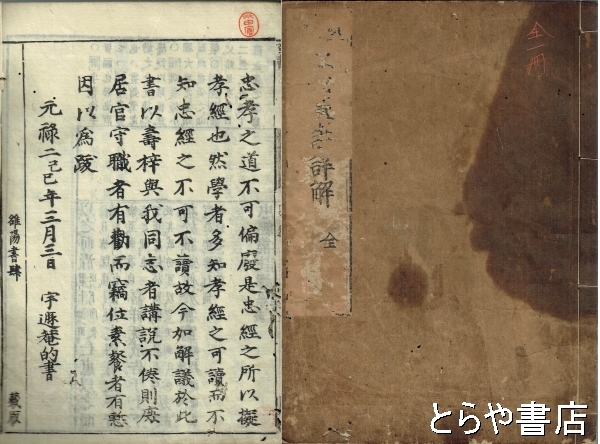 忠孝之道不可偏廢是忠經之所以擬
孝經也然學者多知孝經之可讀而不
知忠經之不可不讀故今如解議於此
書以壽梓與我同志者講說不倦則庶
居官守職者有勸而竊位素餐者有愁
因以為跋
元祿二己巳年三月三日 宇遯菴的書
雒陽書肆
藏版
全一冊
詳解 全
とらや書店